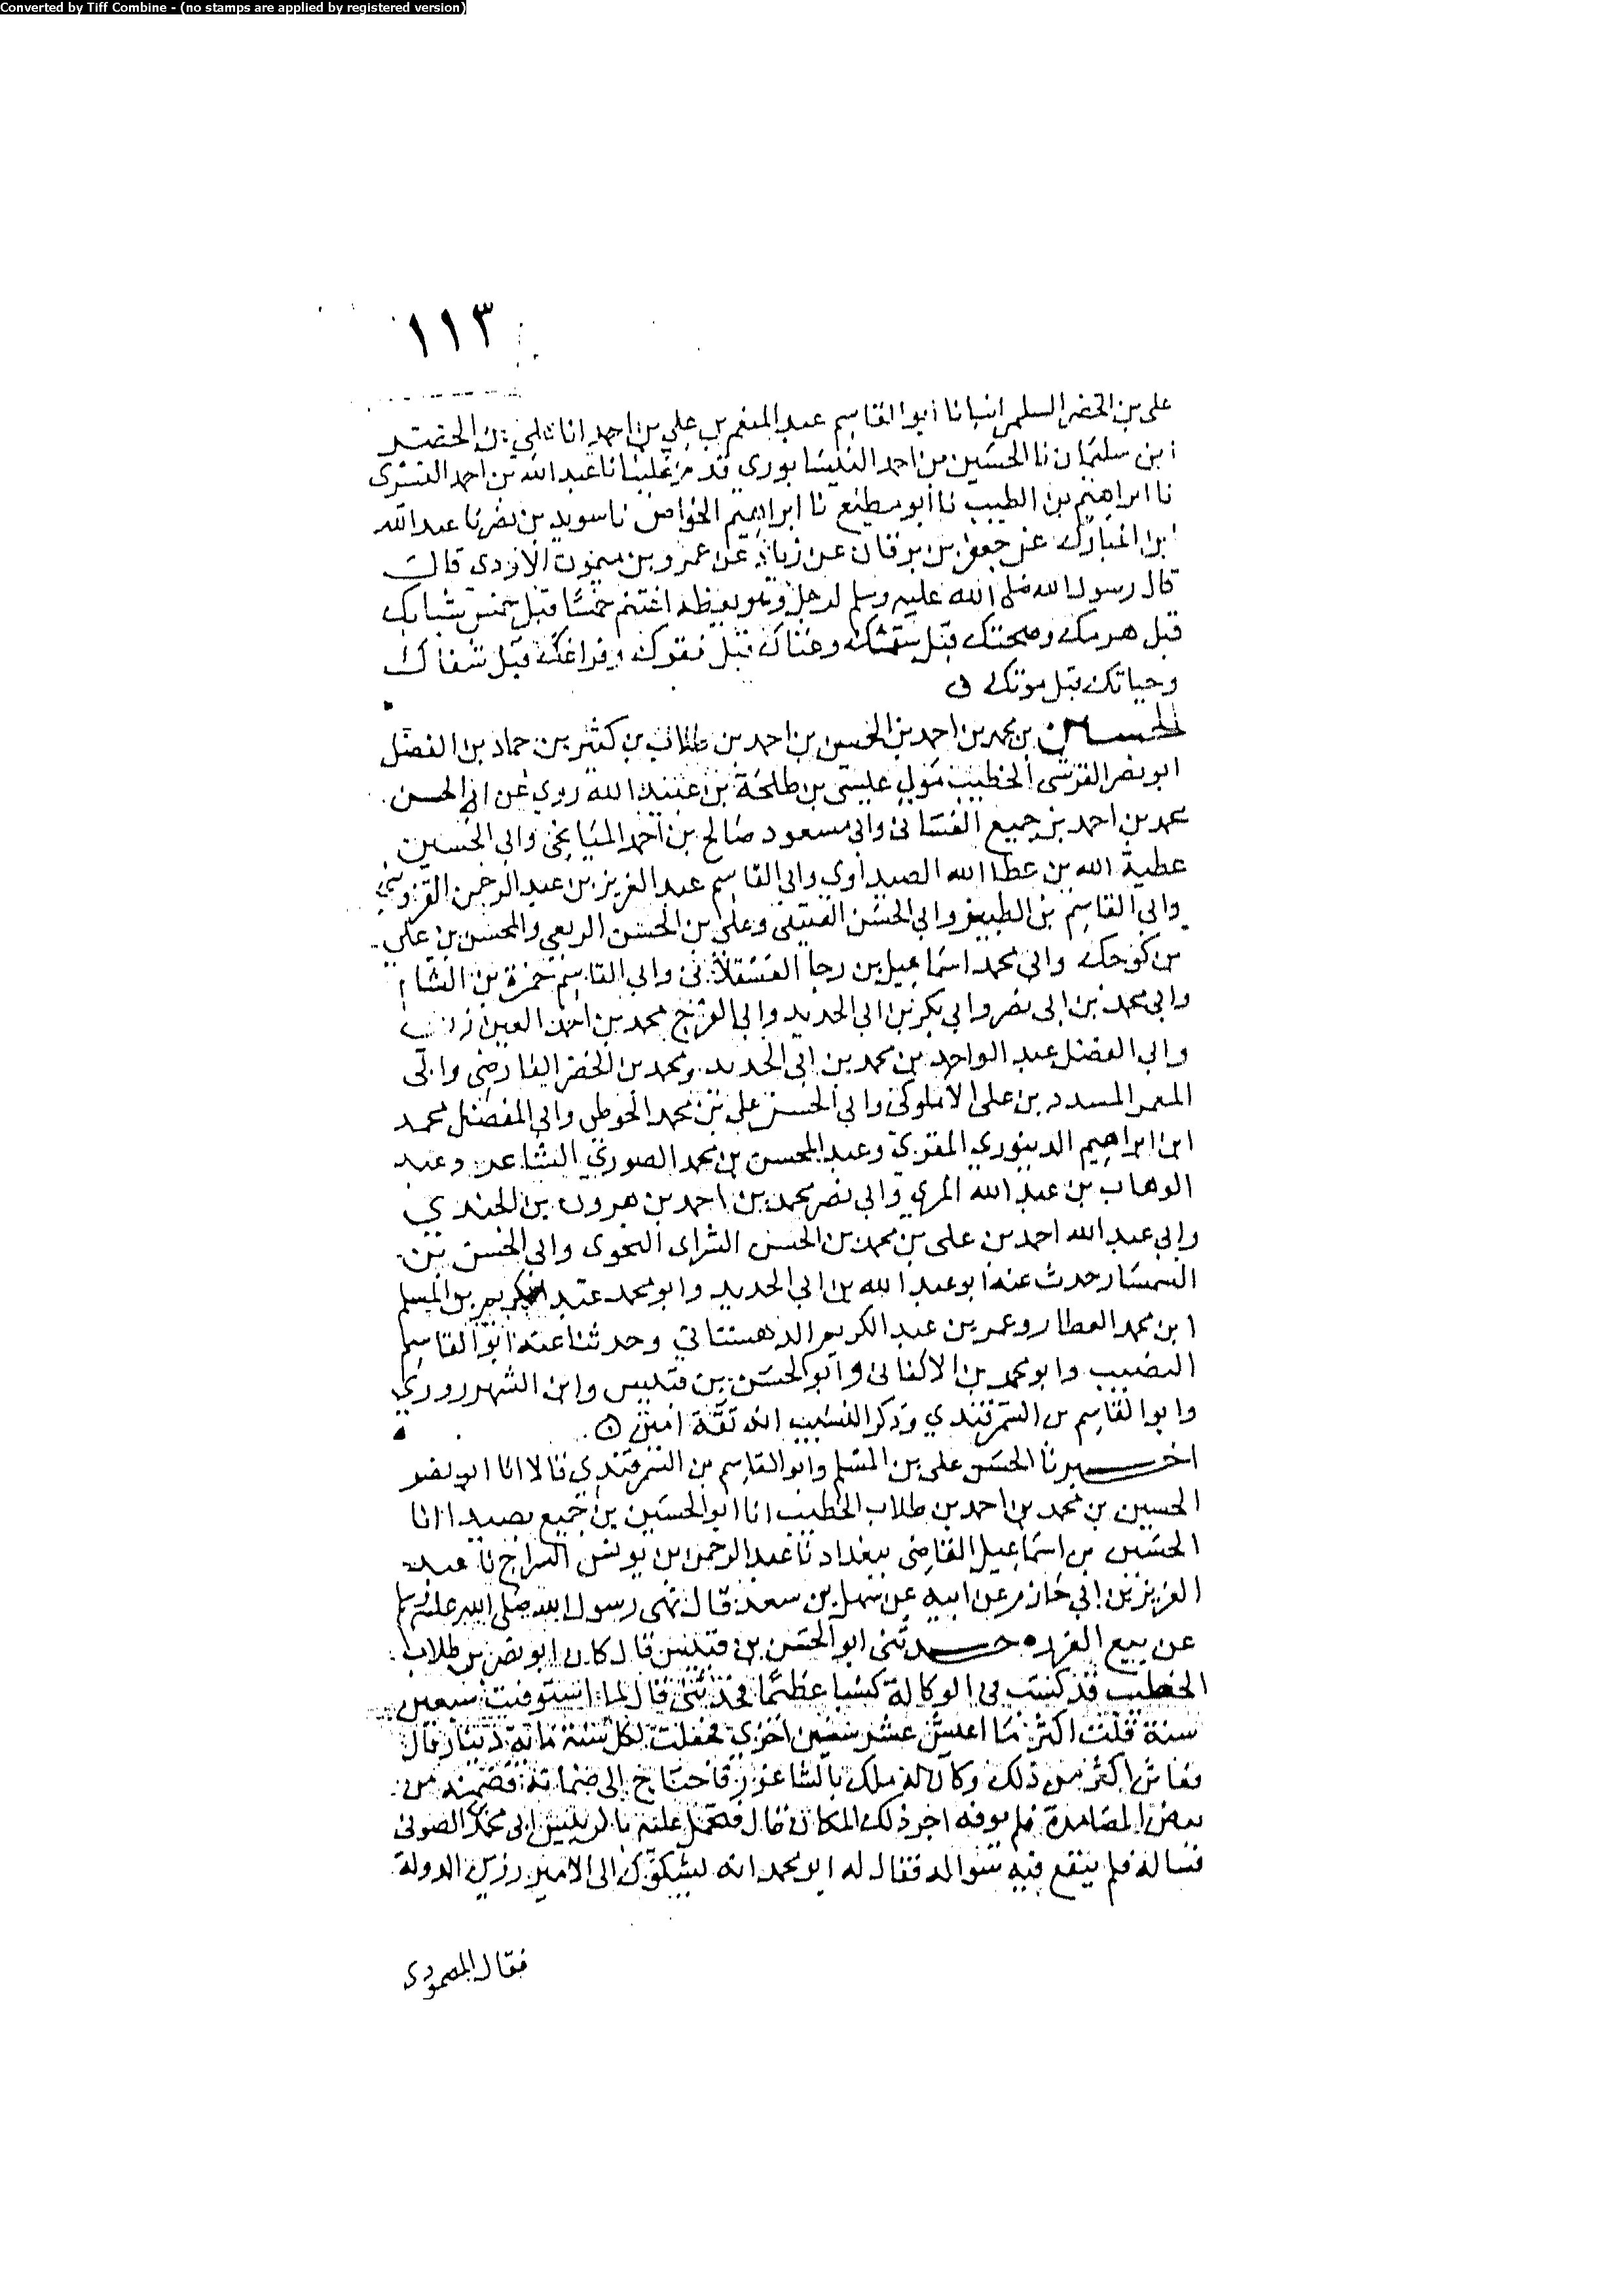 Converted by Tiff Combine - (no stamps are applied by registered version)
١١٣
على بن الخضر السلمى انبانا ابو القاسم عبد المنعم بن علي بن احمد انا علي بن الخضر
ابن سليمان نا الحسين بن احمد النيسابوري قدم علينا نا عبد الله بن احمد النسرى
نا ابراهيم بن الطيب نا أبو مطيع نا ابراهيم الخواص نا سويد بن نصر نا عبد الله
ابن المبارك عن جعفر بن برقان عن زياد عن عمرو بن ميمون الازدي قال
قال رسول الله صلى الله عليه وسلم لرجل وهو يعظه اغتنم خمسا قبل خمس شبابك
قبل هرمك وصحتك قبل سقمك وغناك قبل فقرك وفراغك قبل شغلك
وحياتك قبل موتك
الحسين بن محمد بن احمد بن الحسين بن احمد بن طلاب بن كثير بن حماد بن الفضل
ابو نصر القرشى الخطيب مولى عيسى بن طلحة بن عبيد الله روى عن ابي الحسن
محمد بن احمد بن جميع الغسانى وابي مسعود صالح بن احمد الميانجى وابي الحسين
عطية الله بن عطا الله الصيداوي وابي القاسم عبد العزيز بن عبد الرحمن القزويني
وابي القاسم بن الطبيز وابي الحسن العتيقى وعلى بن الحسن الربعي والمحسن بن علي
بن كوجك وابي محمد اسماعيل بن رجا العسقلانى وابي القاسم حمزة بن الشام
وابي محمد بن ابي نصر وابي بكر بن ابي الحديد وابي الفرج محمد بن احمد العين زربى
وابي الفضل عبد الواحد بن محمد بن ابي الحديد ومحمد بن الخضر الفارضى وابي
المعمر المسدد بن على الاملوكي وابي الحسن على بن محمد الحوطى وابي المفضل محمد
ابن ابراهيم الدينوري المقري وعبد المحسن بن محمد الصوري الشاعر وعبد
الوهاب بن عبد الله المري وابي نصر محمد بن احمد بن هرون بن الجندي
وابي عبد الله احمد بن على بن محمد بن الحسن الشراى النحوى وابي الحسن بن
السمسار حدث عنه ابو عبد الله بن ابي الحديد وابو محمد عبد الكريم بن المسلم
ابن محمد العطار وعمر بن عبد الكريم الدهستاني وحدثنا عنه ابو القاسم
النصيب وابو محمد بن الاكفانى وابو الحسن بن قبيس وابن الشهرزوري
وابو القاسم بن السمرقندي وذكر النسيب انه ثقة امين
اخبرنا الحسن على بن المسلم وابو القاسم بن السمرقندي قالا انا ابو نصر
الحسين بن محمد بن احمد بن طلاب الخطيب انا ابو الحسين بن جميع بصيدا انا
الحسين بن اسماعيل القاضى ببغداد نا عبد الرحمن بن يونس السراج نا عبد
العزيز بن ابي حازم عن ابيه عن سهل بن سعد قال نهى رسول الله صلى الله عليه وسلم
عن بيع الغرر حدثنى ابو الحسن بن قبيس قال كان ابو نصر بن طلاب
الخطيب قد كسب في الوكالة كسبا عظيما فحدثنى قال لما استوفيت سبعين
سنة قلت اكثر ما اعيش عشر سنين اخرى فجعلت لكل سنة مائة دينار قال
فعاش اكثر من ذلك وكان له ملك بالشاغور فاحتاج الى ضمانه فضمنه من
بعض المصامدة فلم يوفه اجر ذلك المكان قال فتحمل عليه بالرييس ابى محمد الصوفى
فساله فلم ينفع فيه سواله فقال له ابو محمد انه ليشكوك الى الامير رزين الدولة
فقال المصمودي